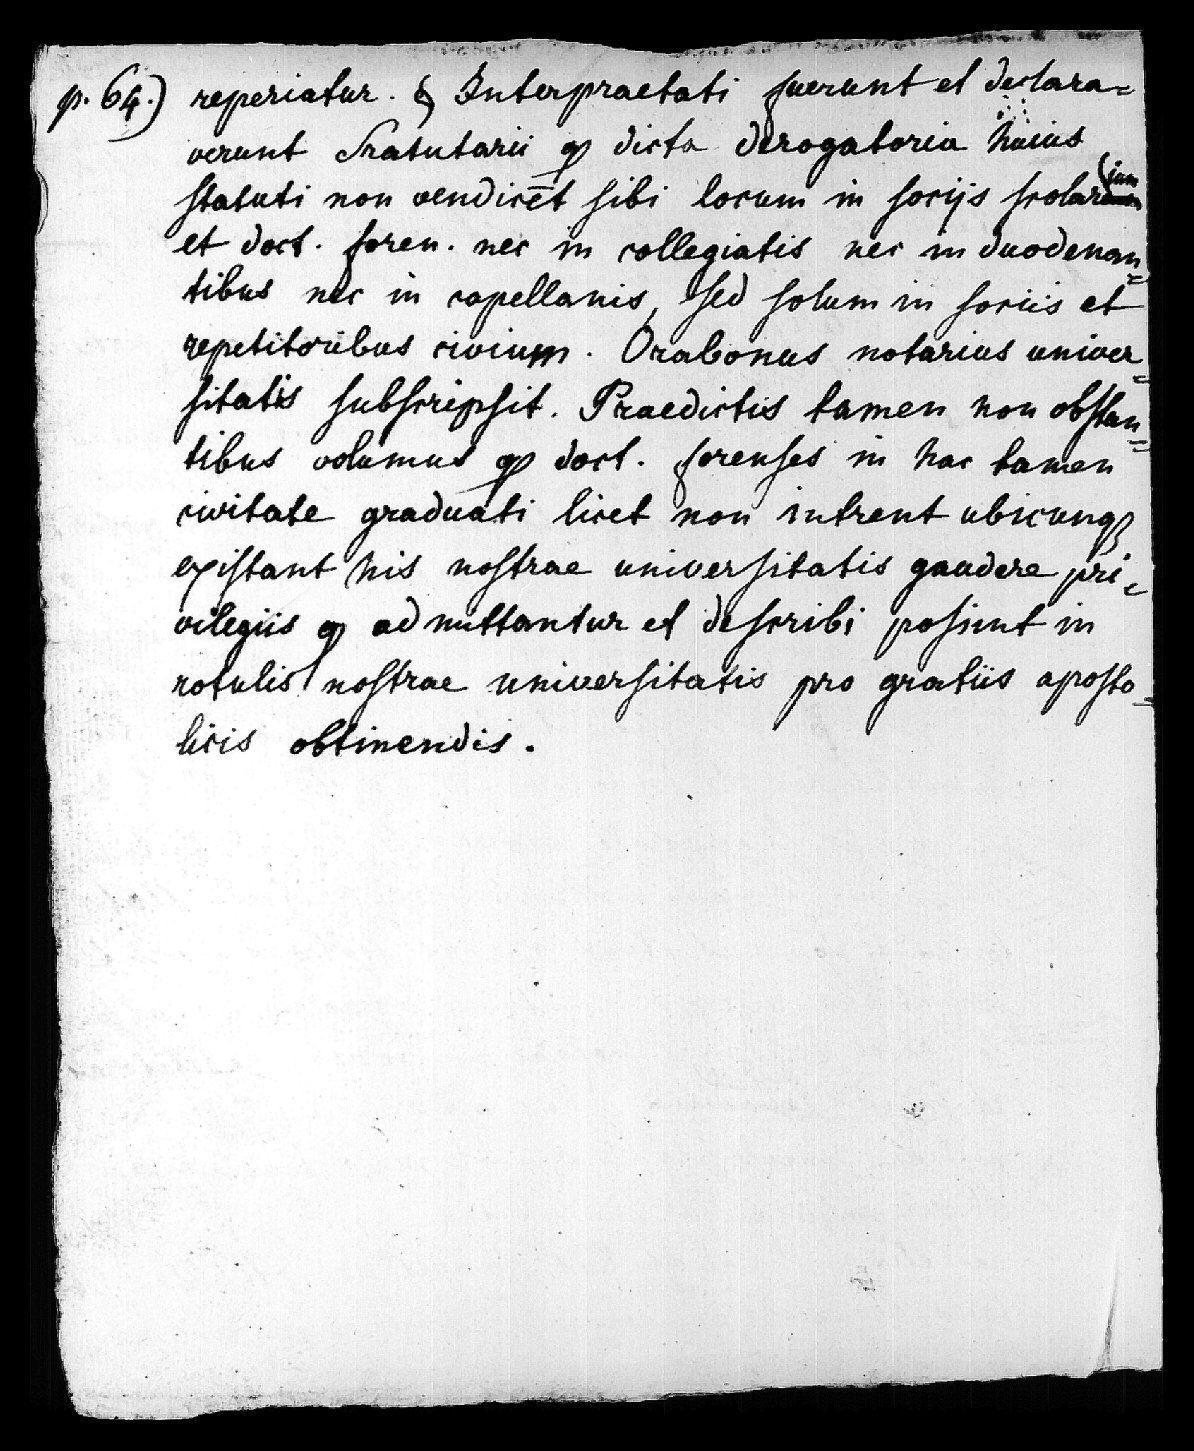 p. 64.) reperiatur. § Interpraetati fuerunt et declara=
verunt Statutarii ꝙ dicta derogatoria huius
statuti non vendicēt sibi locum in socijs scolar(ium
et doct. foren. nec in collegiatis nec in duodenan=
tibus nec in capellanis, sed solum in sociis et
repetitoribus civium. Orabonus notarius univer=
sitatis subscripsit. Praedictis tamen non obstan=
tibus volumus ꝙ doct. forenses in hac tamen
civitate graduati licet non intrent ubicunqꝫ
existant his nostrae universitatis gaudere pri=
vilegiis ꝙ admittantur et describi possint in
rotulis nostrae universitatis pro gratiis aposto=
licis obtinendis.